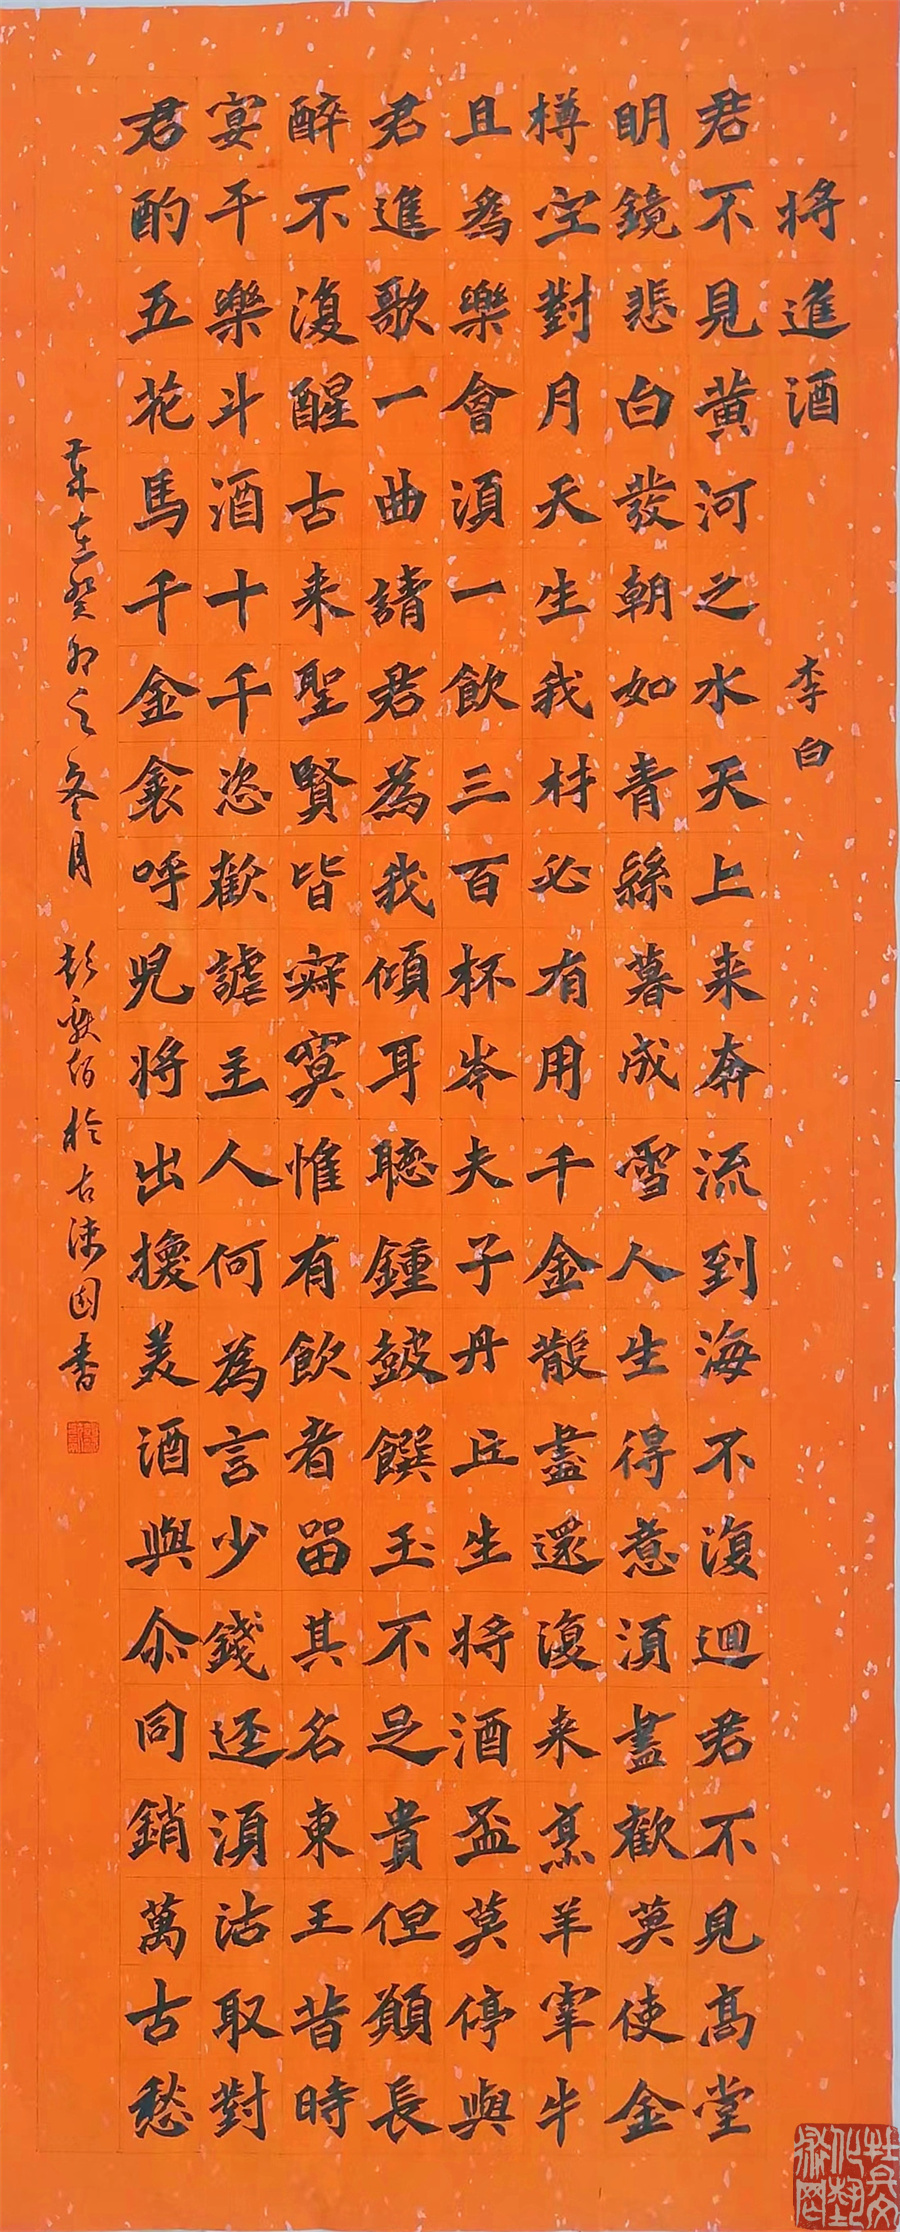 將進酒 李白
君不見黄河之水天上来奔流到海不復迴君不見高堂
明鏡悲白發朝如青絲暮成雪人生得意須盡歡莫使金
樽空對月天生我材必有用千金散盡還復来烹羊宰牛
且為樂會須一飲三百杯岑夫子丹丘生將酒盃莫停與
君進歌一曲請君為我傾耳聽鍾鼓饌玉不足貴但願長
醉不復醒古来聖賢皆寂寞惟有飲者留其名東王昔時
宴平樂斗酒十千恣歡謔主人何為言少錢迳須沽取對
君酌五花馬千金裘呼兒將出換美酒與尒同銷萬古愁
歲在癸卯之冬月 彭 於古 書